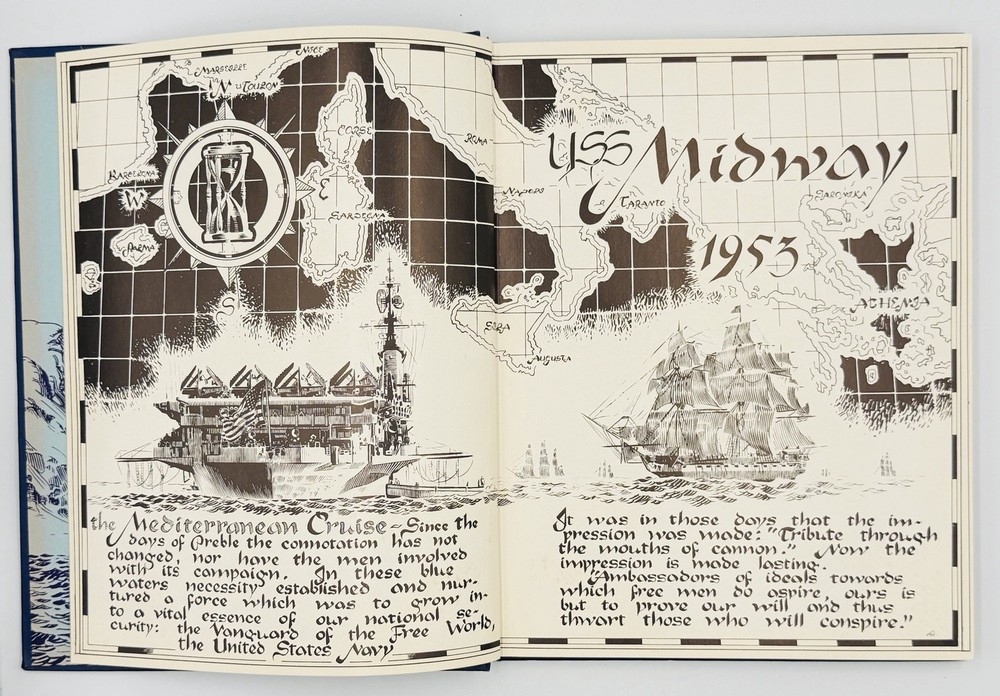 Nice
Marseille
N
Toulon
Corse
Roma
USS Midway
Barcelona
W
E
Napoli
Taranto
Saronika
Sardegna
Parma
1953
S
Athenia
Augusta
the Mediterranean Cruise ~ Since the
days of Preble the connotation has not
changed, nor have the men involved
with its campaign. In these blue
waters necessity established and nur-
tured a force which was to grow in-
to a vital essence of our national se-
curity: the Vanguard of the Free World,
the United States Navy
It was in those days that the im-
pression was made: "Tribute through
the mouths of cannon." Now the
impression is made lasting.
"Ambassadors of ideals towards
which free men do aspire, ours is
but to prove our will and thus
thwart those who will conspire."